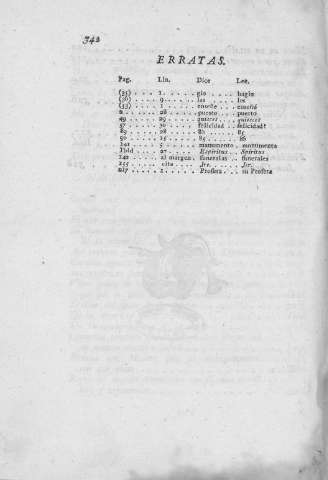 342
ERRATAS.
Pag. Lin. Dice Lee.
(25) .... 1. gio .... hagio
(36) .... 9 .. las .... los
(53) .... 1 ..
8 .... 28 .. puesto .. puerto
49 .... 29 .. quieres .. quieres
57 .... 30 .. felicidad .. felicidad!
89 .... 28 .. 8h .. 85
90 .... 15 .. 85 .. 86
5 .. monumento .. monumenta
Ibid .. 27 .. Espiritus .. Spiritus
142 .. al margen. funeralas .. funerales
155 .. cita .. Jre. .. Jer.
217 .... 1 .. Profeta .. su Profeta